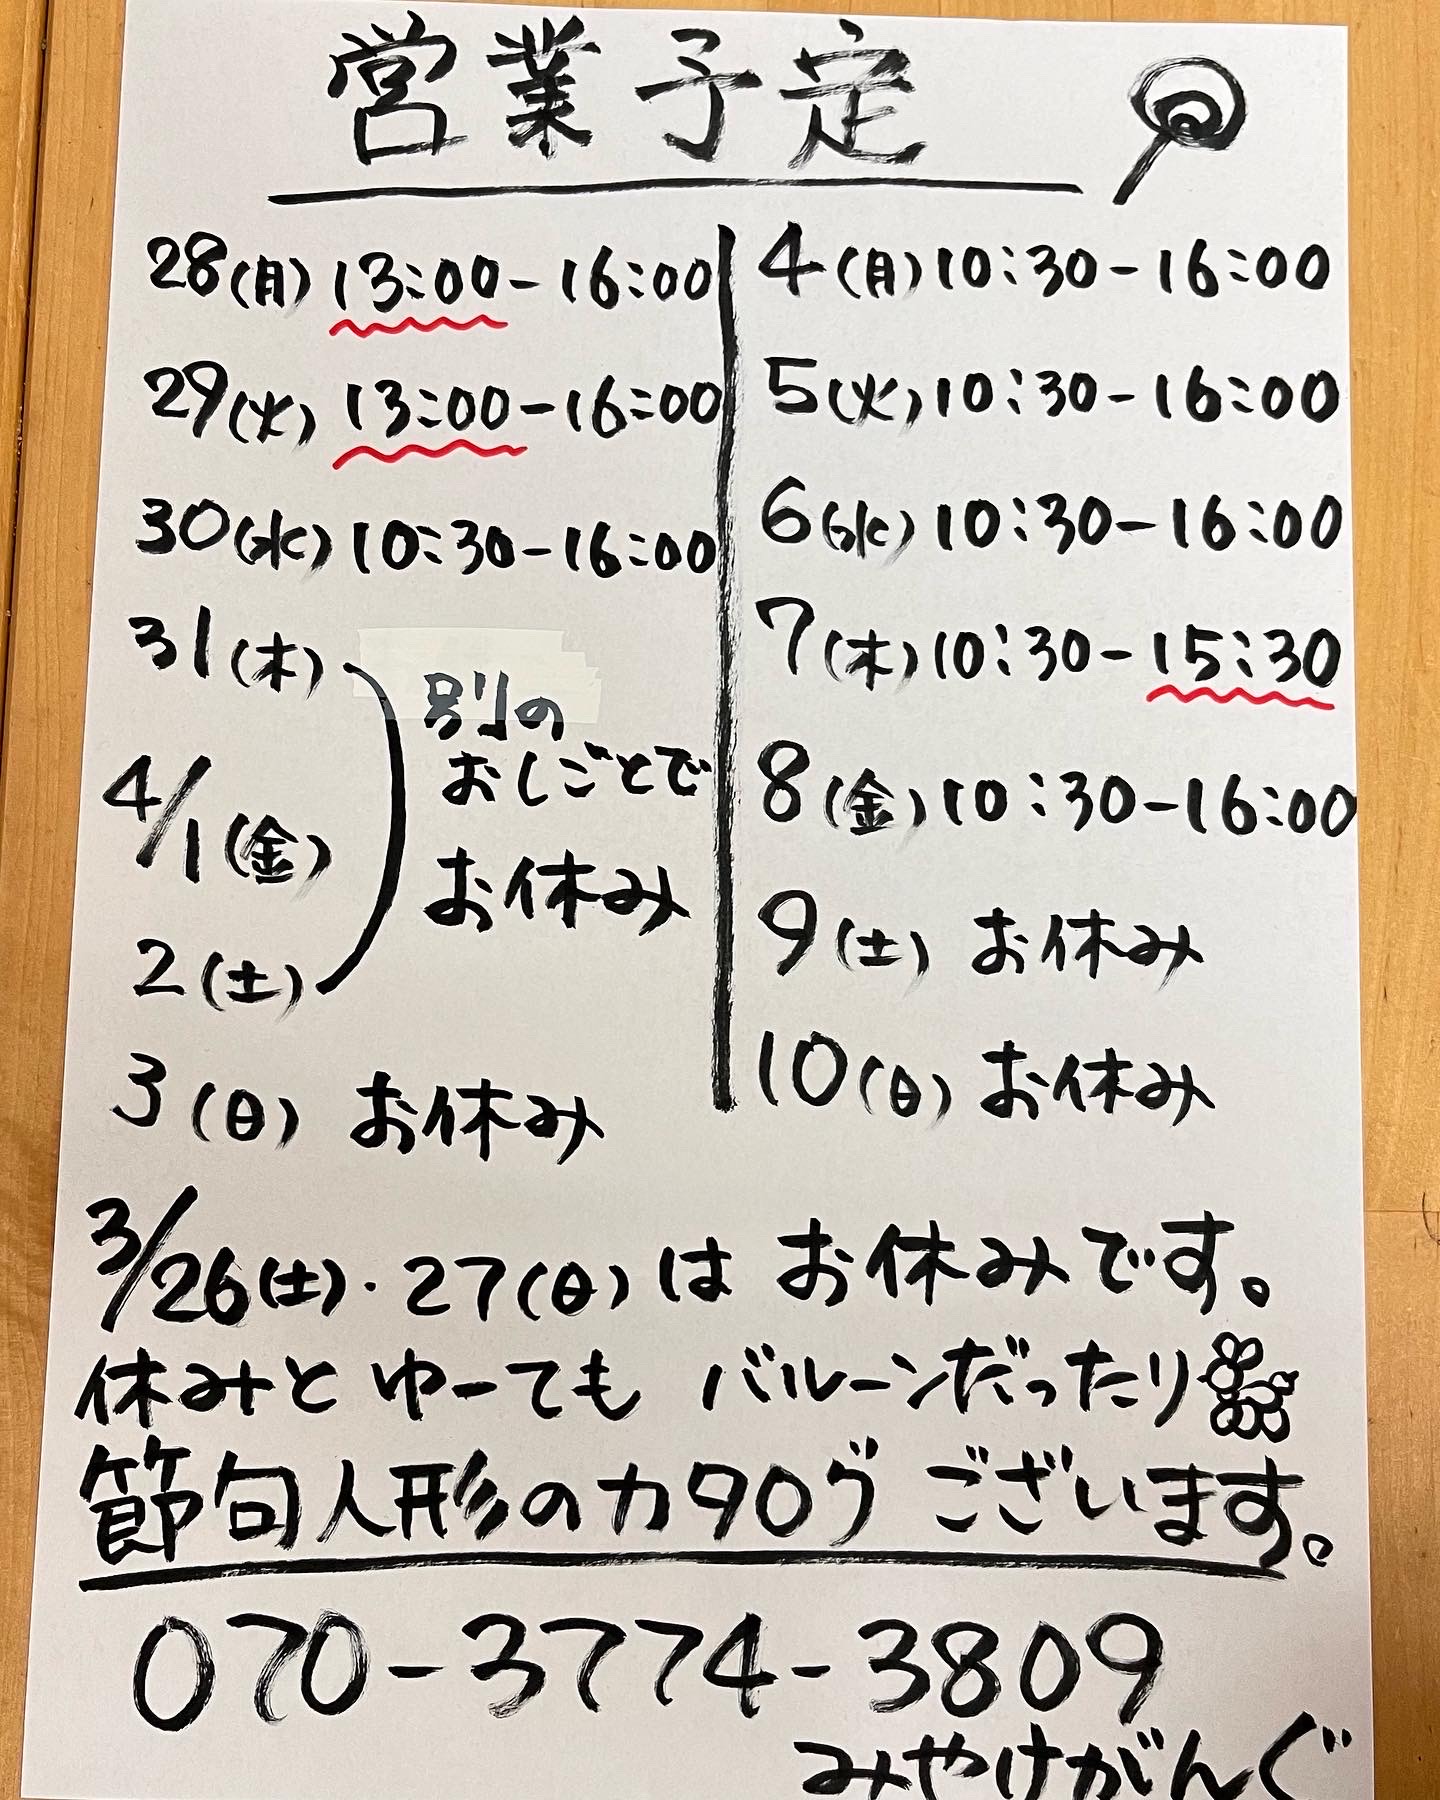 営業予定
28(月)13:00-16:00
29(火)13:00-16:00
30(水)10:30-16:00
31(木)
4/1(金)
2(土)
別の
おしごとで
お休み
3(日)お休み
4(月)10:30-16:00
5(火)10:30-16:00
6(水)10:30-16:00
7(木)10:30-15:30
8(金)10:30-16:00
9(土)お休み
10(日)お休み
3/26(土)・27(日)はお休みです。
休みとゆーても バルーンだったり
節句人形のカタログございます。
070-3774-3809
みやけがんぐ